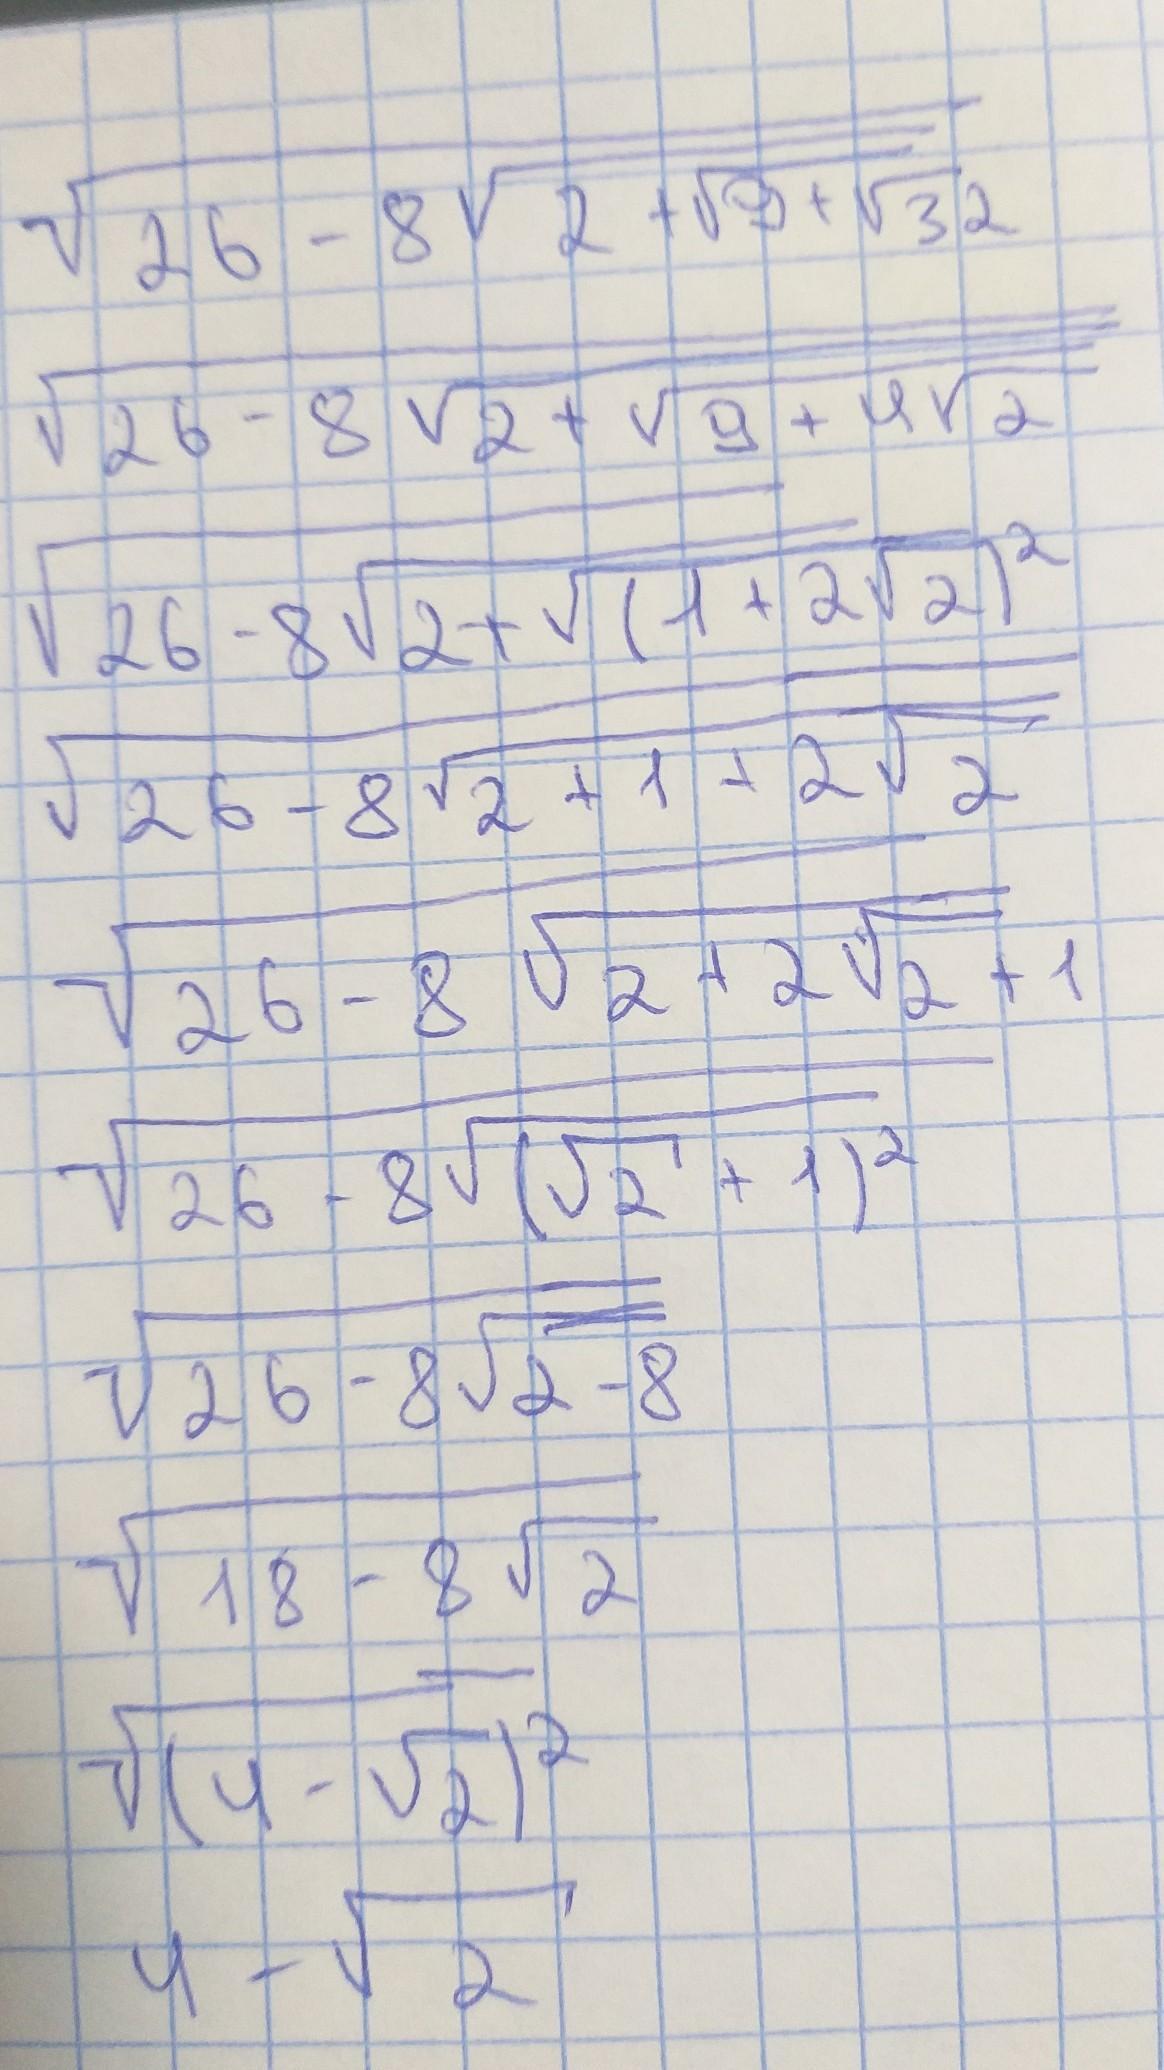 √26 - 8√2 + √9 + √32
√26 - 8√2 + √9 + 4√2
√26 - 8√2 + √(1 + 2√2)²
√26 - 8√2 + 1 + 2√2
√26 - 8√2 + 2√2 + 1
√26 - 8√(√2 + 1)²
√26 - 8√2 - 8
√18 - 8√2
√(4 - √2)²
4 - √2